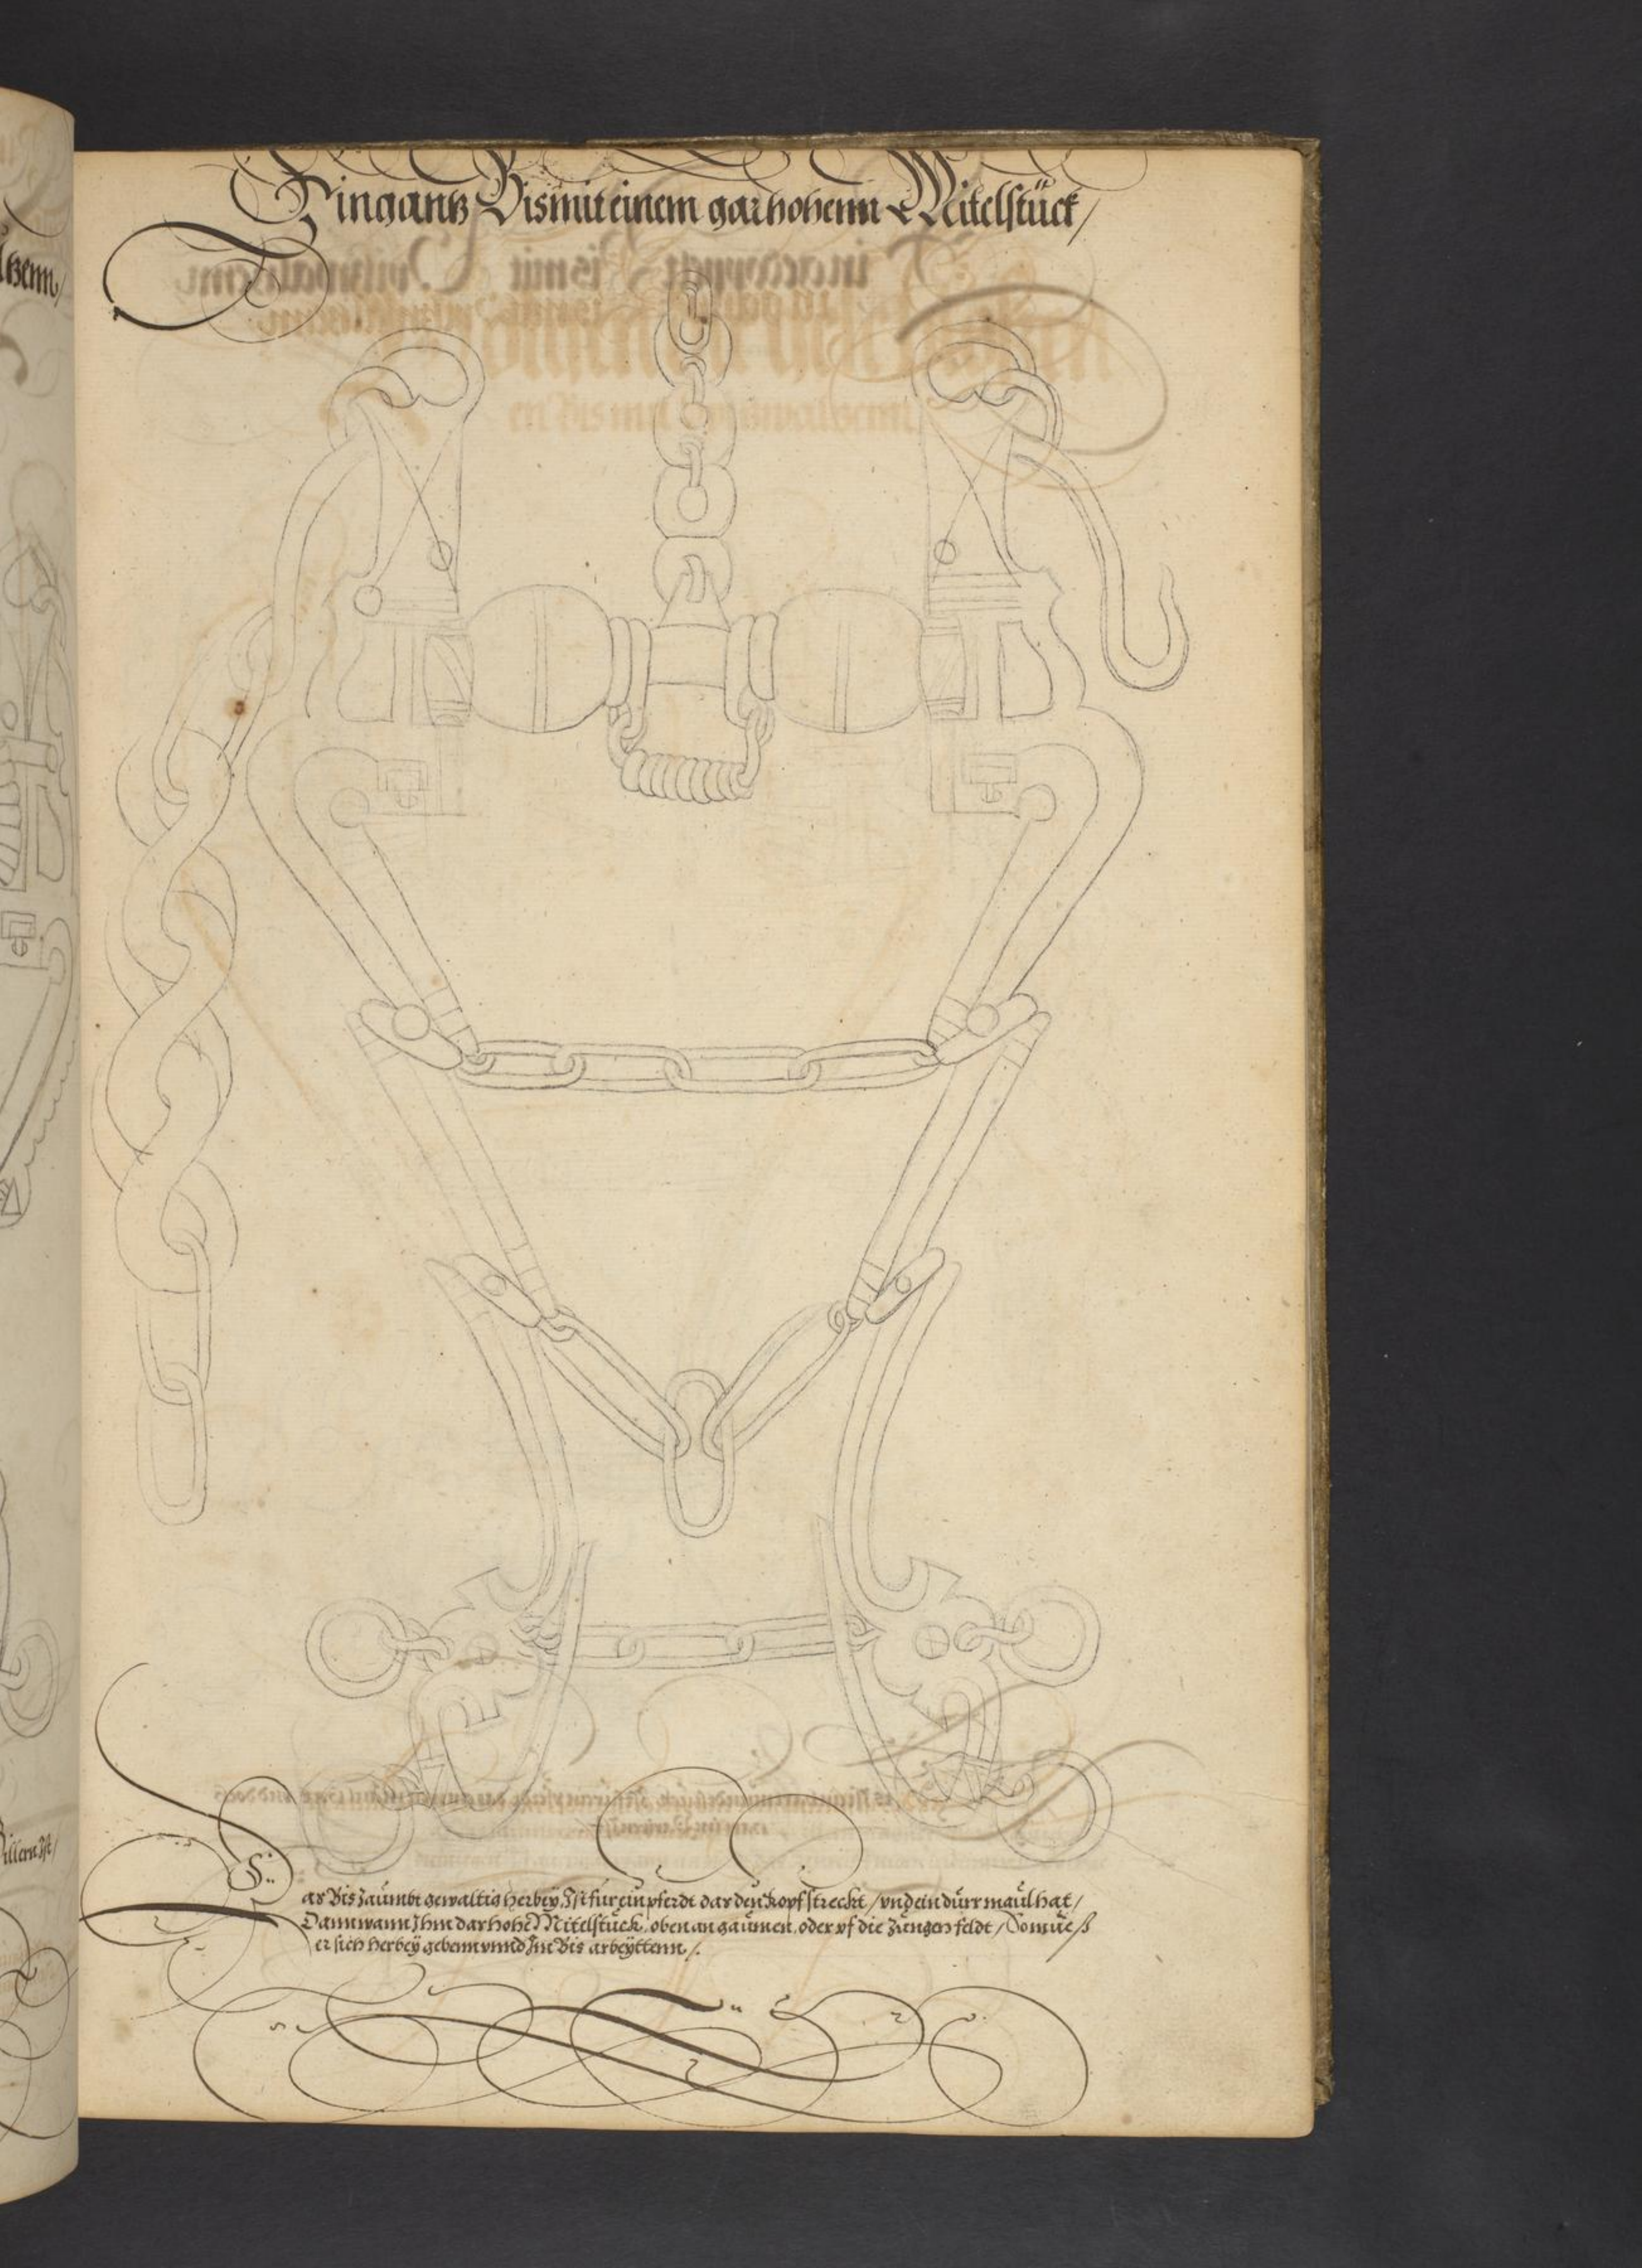 Ein gantz Bis mit einem gar hohenn Mitelstück /
ltzenn /
Das Bis zäumbt gewaltig herbey, Ist für ein pferdt das den kopf streckt / vnd ein dürr maül hat /
Dann wann Ihm das hohe Mitelstück, oben an gaümen, oder vf die Züngen feldt / So müeß
er sich herbeÿ gebenn vnnd Im Bis arbeÿttenn /.